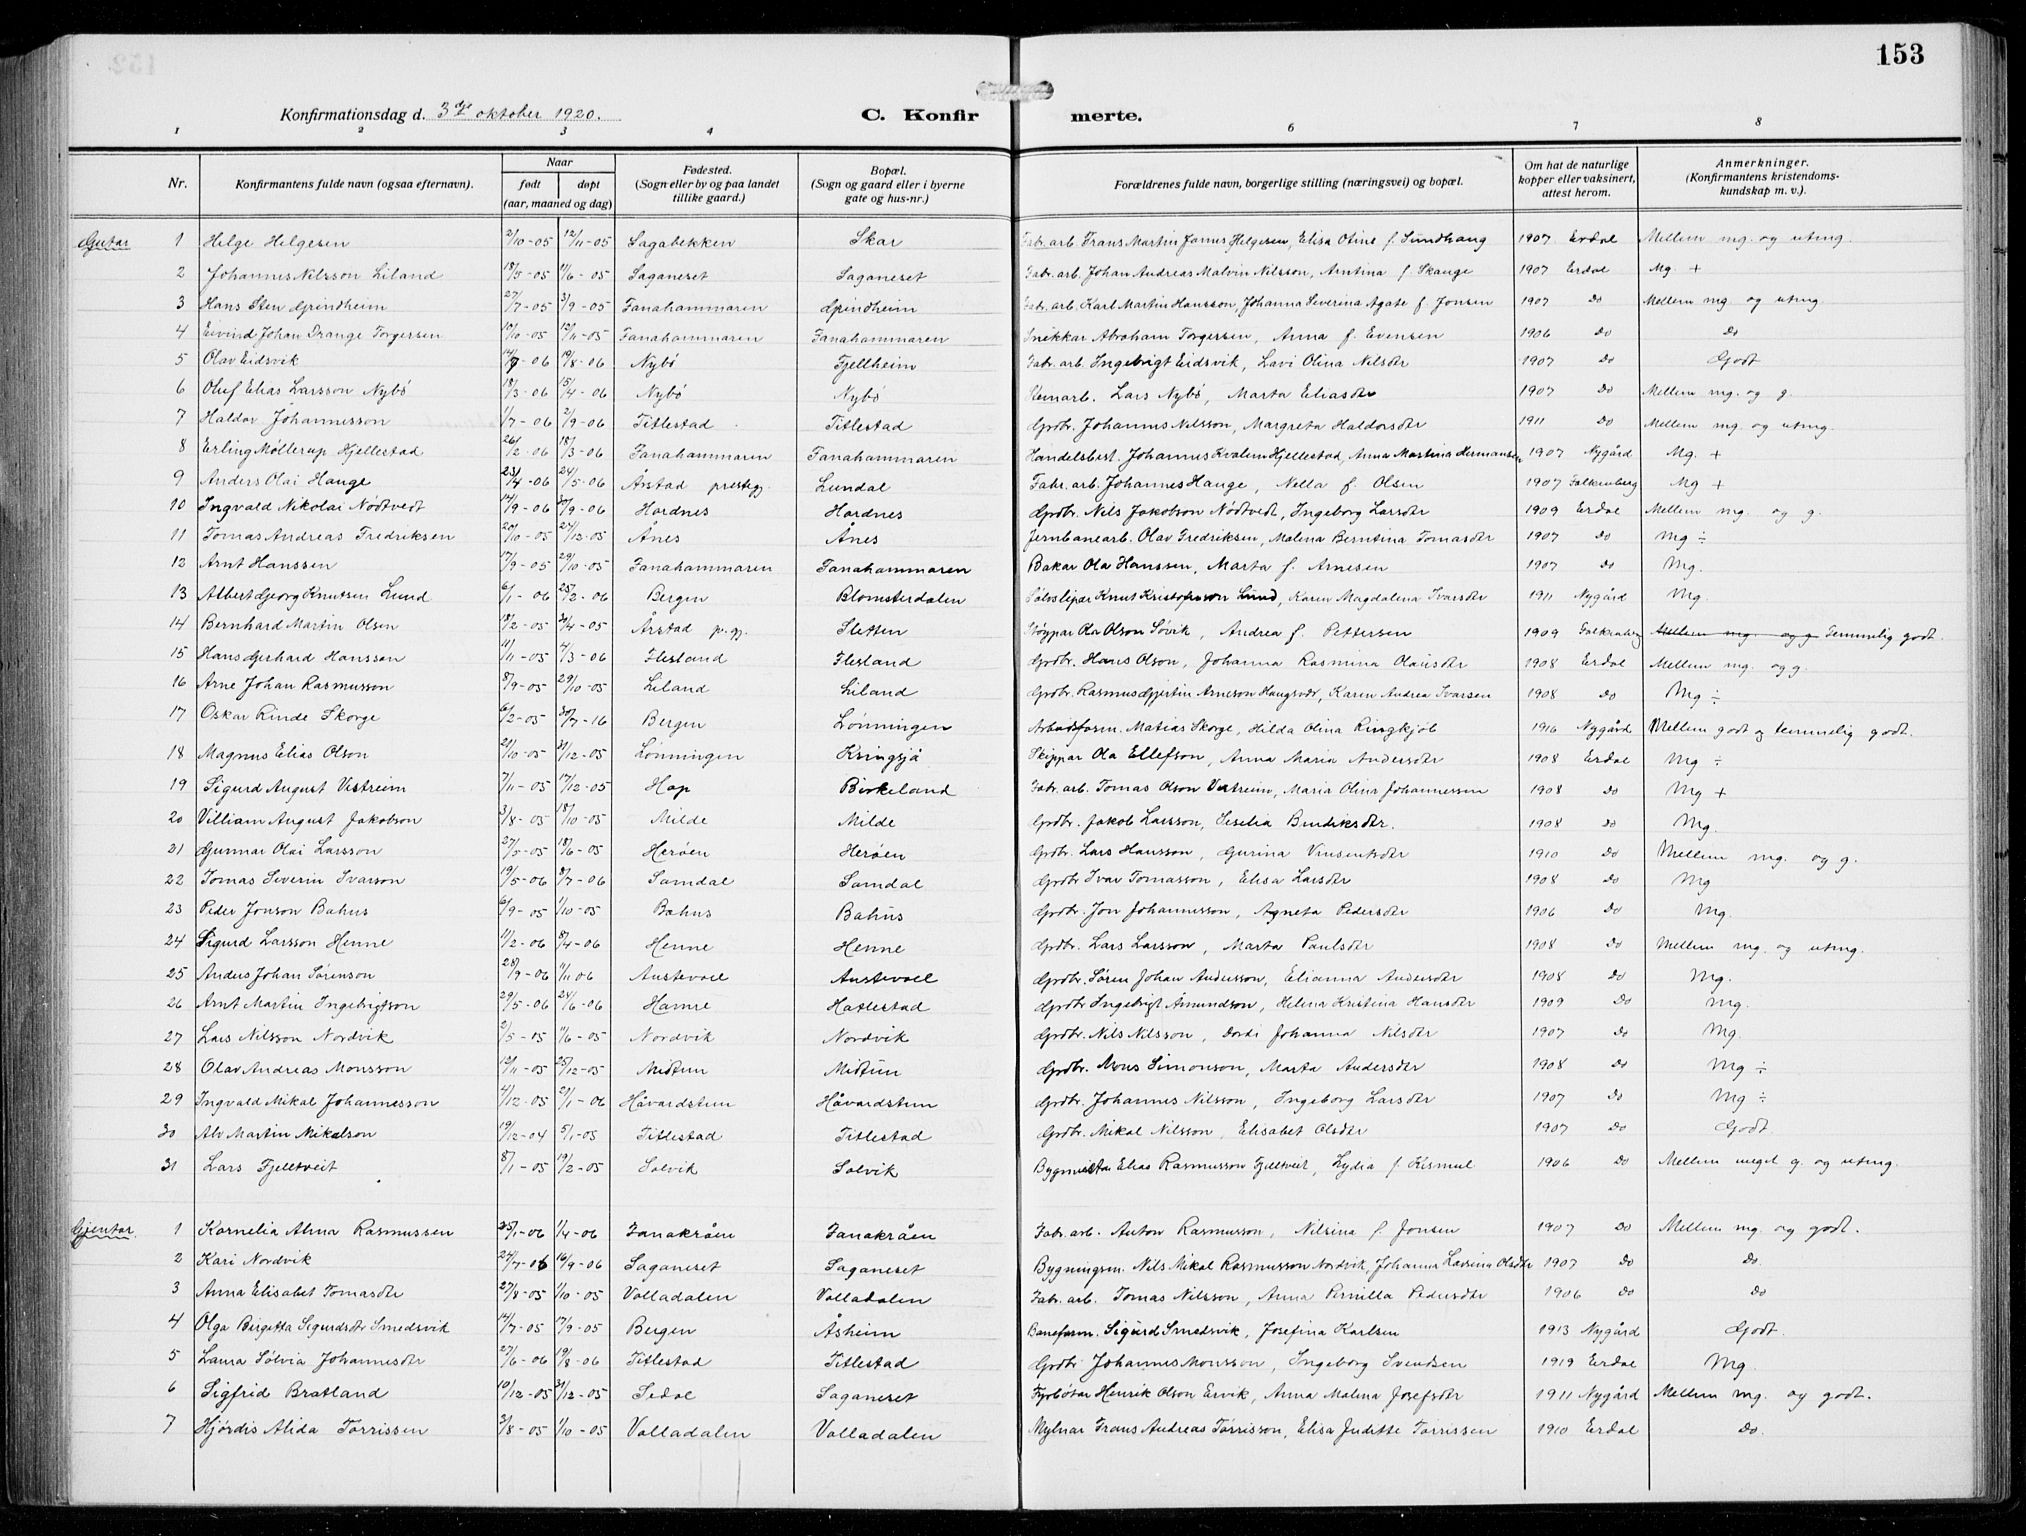 153
Konfirmationsdag d. 3dje oktober 1920. C. Konfirmerte.
1 2 3 4 6 7 8
Nr. Konfirmantens fulde navn (ogsaa efternavn). Naar født døpt (aar, maaned og dag) Fødested. (Sogn eller by og paa landet tillike gaard.) Bopæl. (Sogn og gaard eller i byerne gate og hus-nr.) Forældrenes fulde navn, borgerlige stilling (næringsvei) og bopæl. Om hat de naturlige kopper eller vaksinert, attest herom. Anmerkninger. (Konfirmantens kristendoms-kundskap m. v.).
Gutar 1 Helge Helgesen 2/10-05 12/11-05 Sagabekken Skar Fabr. arb. Frans Martin James Helgesen, Elisa Oline f. Sundhaug 1907 Erdal Mellem mg. og utmg.
2 Johannes Nilsson Liland 18/5-05 11/6-05 Saganeset Saganeset Fabr. arb. Johan Andreas Malvin Nilsson, Arntina f. Skauge 1907 Erdal Mg. +
3 Hans Sten Grindheim 27/7-05 3/9-05 Fanahammaren Grindheim Fabr. arb. Karl Martin Hansson, Johanna Severina Agate f. Jonsen 1907 do Mellem mg. og utmg
4 Eivind Johan Drange Torgersen 10/10-05 12/11-05 Fanahammaren Fanahammaren Snekkar Abraham Torgersen, Anna f. Evensen 1906 do do
5 Olav Eidsvik 14/7-06 19/8-06 Nybø Fjellheim Fabr. arb. Ingebrigt Eidsvik, Lavi Olina Nilsdtr 1907 do Godt
6 Oluf Elias Larsson Nybø 18/3-06 15/4-06 Nybø Nybø Stenarb. Lars Nybø, Marta Eliasdtr 1907 do Mellem mg. og g.
7 Haldor Johannesson 1/7-06 2/9-06 Titlestad Titlestad Grdbr. Johannes Nilsson, Margreta Haldorsdtr 1911 do Mellem mg. og utmg.
8 Erling Møllerup Hjellestad 26/2-06 18/3-06 Fanahammaren Fanahammaren Handelsbest. Johannes Kvalem Hjellestad, Anna Martina Hermansen 1907 Nygård Mg. +
9 Anders Olai Hauge 23/4-06 24/5-06 Årstad prestegj. Lundal Fabr. arb. Johannes Hauge, Nella f. Olsen 1907 Falkenberg Mg +
10 Ingvald Nikolai Nødtvedt 14/9-06 30/9-06 Hordnes Hordnes Grdbr. Nils Jakobson Nødtvedt, Ingeborg Larsdtr 1909 Erdal Mellem mg. og g.
11 Tomas Andreas Fredriksen 20/10-05 27/12-05 Ånes Ånes Jernbanearb. Olav Fredriksen, Malena Berntina Tomasdtr 1907 do Mg ÷
12 Arnt Hanssen 17/9-05 29/10-05 Fanahammaren Fanahammaren Bakar Ola Hanssen, Marta f. Arnesen 1907 do Mg.
13 Albert Georg Knutsen Lund 6/1-06 25/2-06 Bergen Blomsterdalen Sølvslipar Knut Kristoferson Lund, Karen Magdalena Ivarsdtr 1911 Nygård Mg.
14 Bernhard Martin Olsen 18/2-05 30/4-05 Årstad p.gj. Sletten Støypar Ola Olson Søvik, Andrea f. Pettersen 1909 Falkenberg Mellem mg. og g Temmelig godt.
15 Hans Gerhard Hansson 11/11-05 4/3-06 Flesland Flesland Grdbr. Hans Olson, Johanna Rasmina Olausdtr 1908 Erdal Mellem mg. og g.
16 Arne Johan Rasmusson 8/9-05 29/10-05 Liland Liland Grdbr. Rasmus Gjertin Arneson Haugsvær, Karen Andrea Ivarsen 1908 do Mg ÷
17 Oskar Rinde Skorge 6/2-05 30/7-16 Bergen Lønningen Arbeidsform. Matias Skorge, Hilda Olina Ringkjøb 1916 Nygård Mellem godt og temmelig godt.
18 Magnus Elias Olson 21/10-05 31/12-05 Lønningen Kringsjå Skippar Ola Ellefson, Anna Maria Andersdtr 1908 Erdal Mg ÷
19 Sigurd August Vestreim 7/11-05 17/12-05 Hop Birkeland Fabr. arb. Tomas Olson Vestreim, Maria Olina Johannessen 1908 do Mg +
20 Villiam August Jakobson 3/8-05 18/10-05 Milde Milde Grdbr. Jakob Larsson, Seselia Bendiksdtr. 1908 do Mg.
21 Gunnar Olai Larsson 27/5-05 18/6-05 Herøen Herøen Grdbr. Lars Hansson, Gurina Vinsentsdtr 1910 do Mellem mg. og g.
22 Tomas Severin Ivarson 19/5-06 8/7-06 Samdal Samdal Grdbr Ivar Tomasson, Elisa Larsdtr 1908 do Mg
23 Peder Jonson Bahus 6/9-05 1/10-05 Bahus Bahus Grdbr. Jon Johannesson, Agneta Pedersdtr 1906 do Mg.
24 Sigurd Larsson Henne 11/2-06 8/4-06 Henne Henne Grdbr. Lars Larsson, Marta Paulsdtr 1908 do Mellem mg. og utmg.
25 Anders Johan Sørenson 28/9-06 11/11 06 Austevoll Austevoll Grdbr. Søren Johan Andersson, Elianna Andersdtr 1908 do Mg.
26 Arnt Martin Ingebrigtson 29/5-06 24/6-06 Hamre Hatlestad Grdbr Ingebrigt Amundson, Helena Kristina Hansdtr 1909 do Mg.
27 Lars Nilsson Nordvik 2/5-05 11/6-05 Nordvik Nordvik Grdbr. Nils Nilsson, Dorti Johanna Nilsdtr 1907 do Mg.
28 Olav Andreas Monsson 19/11-05 25/12-05 Midtun Midtun Grdbr. Mons Simonson, Marta Andersdtr 1908 do Mg ÷
29 Ingvald Mikal Johannesson 4/12-05 21/1-06 Håvardstun Håvardstun Grdbr. Johannes Nilsson, Ingeborg Larsdtr 1907 do Mg ÷
30 Alv Martin Mikalson 19/12-04 5/1-05 Titlestad Titlestad Grdbr. Mikal Nilsson, Elisabet Olsdtr 1907 do Godt
31 Lars Fjelltveit 8/1-05 19/2-05 Solvik Solvik Bygmeister Elias Rasmusson Fjelltveit, Lydia f. Kismul 1906 do Mellem meget g. og utmg.
Gjentar 1 Kornelia Alma Rasmussen 25/1-06 1/4-06 Fanakråen Fanakråen Fabr. arb. Anton Rasmusson, Nilsina f. Jonsen 1907 do Mellem mg. og godt.
2 Kari Nordvik 24/7-06 16/9-06 Saganeset Saganeset Bygningsm. Nils Mikal Rasmusson Nordvik, Johanna Larsina Olsdtr 1907 do do.
3 Anna Elisabet Tomasdtr 27/8-05 1/10-05 Valladalen Valladalen Fabr. arb. Tomas Nilsson, Anna Pernilla Pedersdtr 1906 do do
4 Olga Birgetta Sigurdsdtr Smedsvik 14/7-05 17/9-05 Bergen Åsheim Baneform. Sigurd Smedsvik, Josefina Karlsen 1913 Nygård Godt.
5 Laura Sølvia Johannesdtr 27/6-06 19/8-06 Titlestad Titlestad Grdbr Johannes Monsson, Ingeborg Svendsen 1919 Erdal Mg.
6 Sigfrid Bratland 10/12-05 31/12-05 Sedal Saganeset Fyrbøtar Henrik Olson Ervik, Anna Malena Josefsdtr 1911 Nygård Mellem mg. og godt.
7 Hjørdis Alida Tørrissen 3/8-05 1/10-05 Valladalen Valladalen Mylnar Frans Andreas Tørrisson, Elisa Juditte Tørrissen 1910 Erdal do.